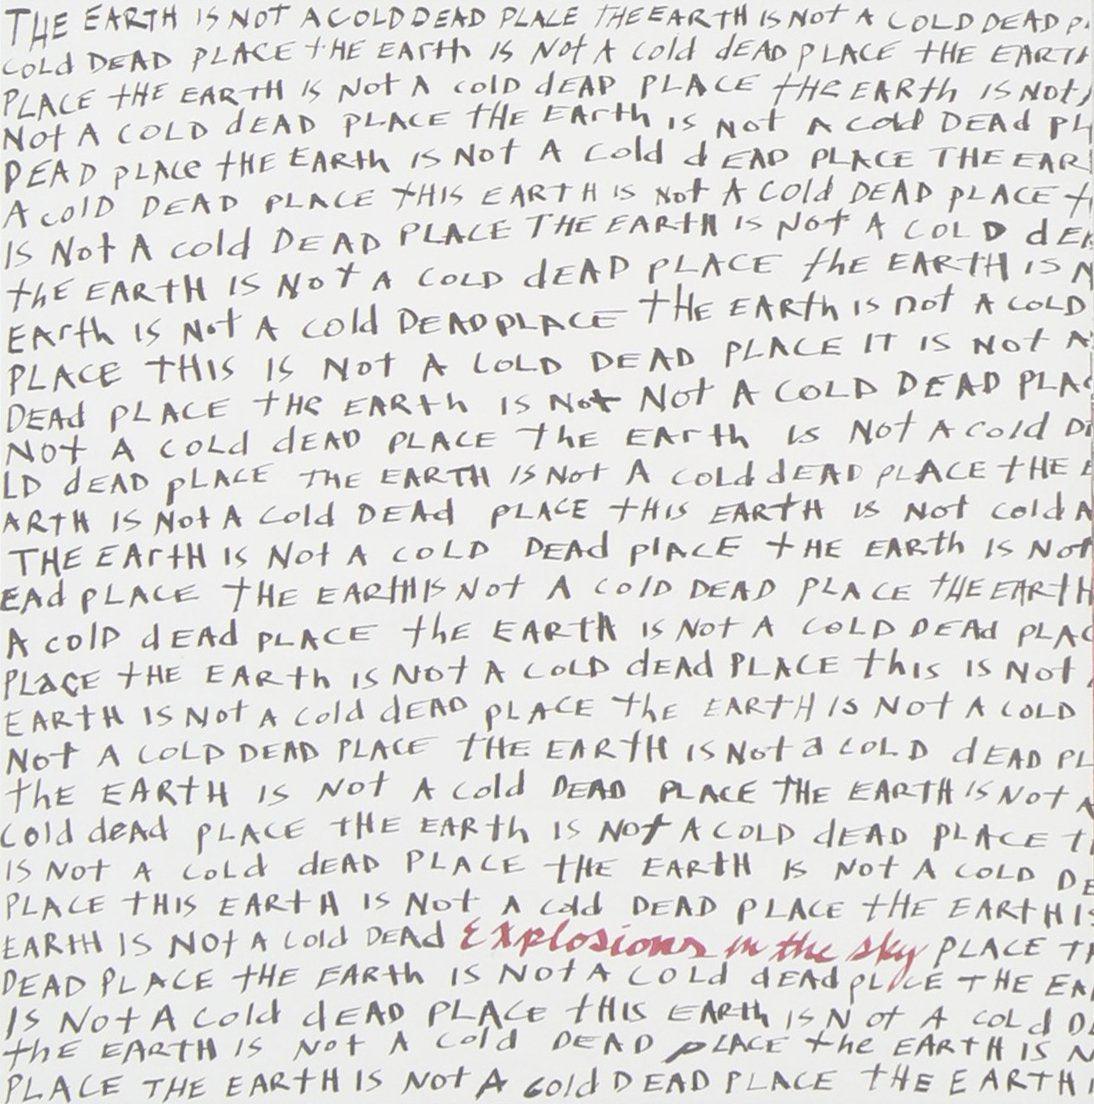 THE EARTH IS NOT A COLD DEAD PLACE THE EARTH IS NOT A COLD DEAD P
COLd DEAD PLACE tHE EArth IS Not A cold dEAD PLACE tHE EARTH
PLACE tHE EARTH IS Not A cOlD dEAD PLACE tHE EARth IS NOt
Not A COLD dEAD PLACE tHE EArth is Not A cold DEAd PL
DEAD pLAce tHE EARth IS Not A Cold d EAD PLACE THE EAR
A colD DEAD PLACE tHIS EARTH IS Not A Cold DEAD PLACE t
IS Not A cold DEAD PLACE THE EARtH IS Not A COLD dEA
thE EARtH IS Not A COLD dEAD pLACE thE EARtH IS N
EArth IS Not A cold DEADPLACE tHE EARth is not A cOLD
PLACE tHIS IS Not A LOLD DEAD PLACE IT IS Not A
DEAd pLACE tHe EARth IS Not Not A COLD DEAD PLAC
Not A COLd dEAD PLACE the EARth is Not A cold D
LD dEAD pLACE THE EARTH IS Not A cold dEAD PLACE tHE E
ARTH IS Not A Cold DEAd PLACE tHIS EARtH IS Not cold A
THE EArtH IS Not A COLD DEAd plACE tHE EARth IS Not
EAd pLACE tHE EARtHIS Not A ColD DEAD PLACE tHE EARtH
A colD dEAd pLACE thE EARth IS Not A COLD DEAd pLAC
PLaCE tHE EARth IS NOt A COLD dEAd PLACE this IS Not
EARtH IS Not A Cold dEAD pLACE the EARtH IS Not A COLD
Not A COLD DEAD PLACE tHE EARtH IS Not a COLD dEAD PL
thE EARtH IS Not A Cold DEAD PLACE THE EARtH IS Not A
Cold deAd pLACE tHE EARth IS Not A COLD dEAD PLACE t
IS Not A Cold dEAD PLACE tHE EARtH IS Not A COLD DE
PLACE tHIS EARtH IS Not A cold DEAD PLACE tHE EARtHIS
EARtH IS Not A Cold DEAD Explosions in the sky PLACE T
DEAD PLACE tHE EARth IS NOt A COLD dEAdpLACE THE EA
IS Not A Cold dEAD PLACE tHIS EARth IS Not A COLd D
thE EARtH IS Not A Cold DEAD pLACE the EARtH IS N
PLACE THE EARtH IS Not A Cold DEAD PLACE tHE EARTH